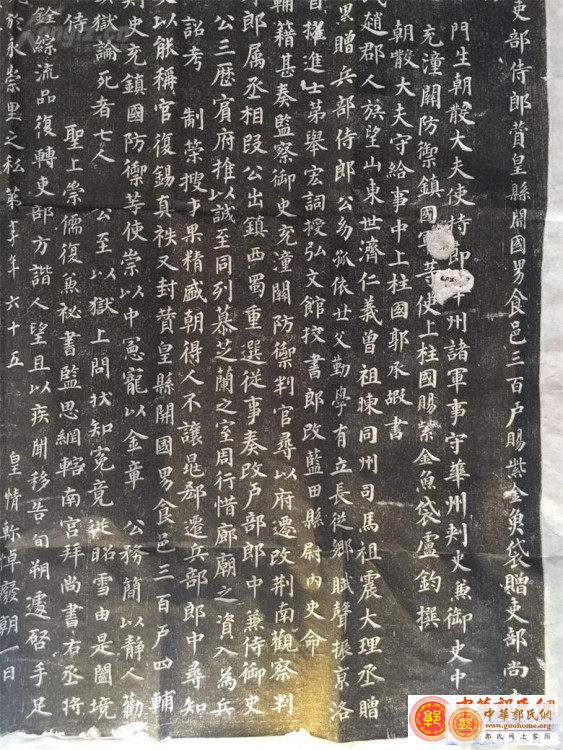 吏部侍郎贊皇縣開國男食邑三百户賜紫金魚袋贈吏部尚
門生朝散大夫使持節華州諸軍事守華州刺史兼御史中
充潼關防禦鎮國軍等使上柱國賜紫金魚袋盧鈞撰
朝散大夫守給事中上柱國郭承嘏書
趙郡人族望山東世濟仁義曾祖暕同州司馬祖震大理丞贈
累贈兵部侍郎公幼孤依世父勤學有立長從鄉賦聲振京洛
擢進士第舉宏詞授弘文館挍書郎改藍田縣尉内史命
輔籍甚奏監察御史充潼關防禦判官尋以府遷改荆南觀察判
郎属丞相段公出鎮西蜀重選從事奏改户部郎中兼侍御史
公三歷賓府推以誠至同列慕芝蘭之室周行惜廊廟之資入為兵
詔考制榮搜事果精盛朝得人不讓晁郄遷兵部郎中尋知
又以能稱官復錫真袟又封贊皇縣開國男食邑三百户四輔
刺史充鎮國防禦等使崇以中憲寵以金章公務簡以靜人勸
以獄論死者七人公至以獄上問狀知寃竟從昭雪由是闔境
侍聖上崇儒復兼祕書監思綱轄南宫拜尚書右丞將
銓綜流品復轉吏部方諧人望且以疾聞移告旬朔遽啓手足
於永崇里之私第享年六十五皇情軫悼廢朝一日
中華郭氏網
www.guohome.org
郭氏网上家園